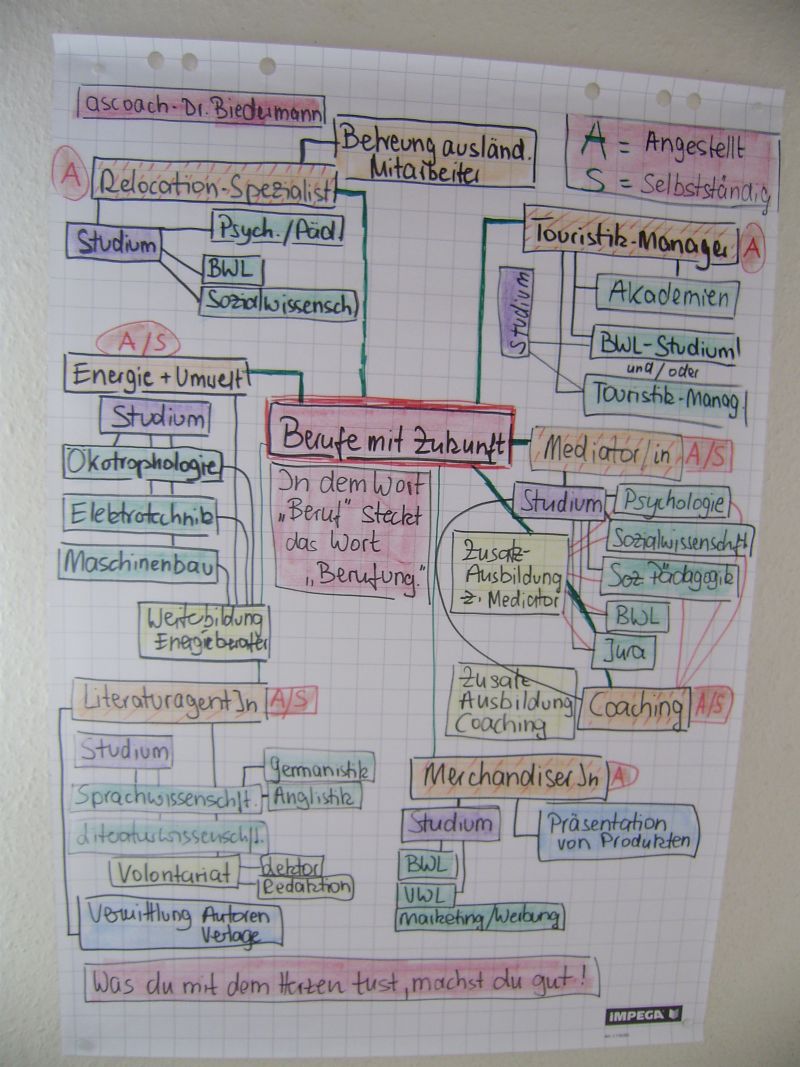 ascoach-Dr. Biedermann
Betreuung ausländ.
Mitarbeiter
A = Angestellt
S = Selbstständig
A
Relocation-Spezialist
Studium
Psych./Päd.
BWL
Sozialwissensch.
Touristik-Manager
A
Studium
Akademien
BWL-Studium
und/oder
Touristik-Manag.
A/S
Energie + Umwelt
Studium
Ökotrophologie
Elektrotechnik
Maschinenbau
Weiterbildung
Energieberater
Berufe mit Zukunft
In dem Wort
„Beruf" steckt
das Wort
„Berufung."
Mediator/in
A/S
Studium
Psychologie
Sozialwissenschft
Soz Pädagogik
BWL
Jura
Zusatz-
Ausbildung
z. Mediator
Zusatz
Ausbildung
Coaching
Coaching
A/S
LiteraturagentIn
A/S
Studium
Sprachwissenschft.
Germanistik
Anglistik
Literaturwissenschft.
Volontariat
Lektor
Redaktion
Vermittlung Autoren
Verlage
MerchandiserIn
A
Studium
BWL
VWL
Marketing/Werbung
Präsentation
von Produkten
Was du mit dem Herzen tust, machst du gut!
IMPEGA